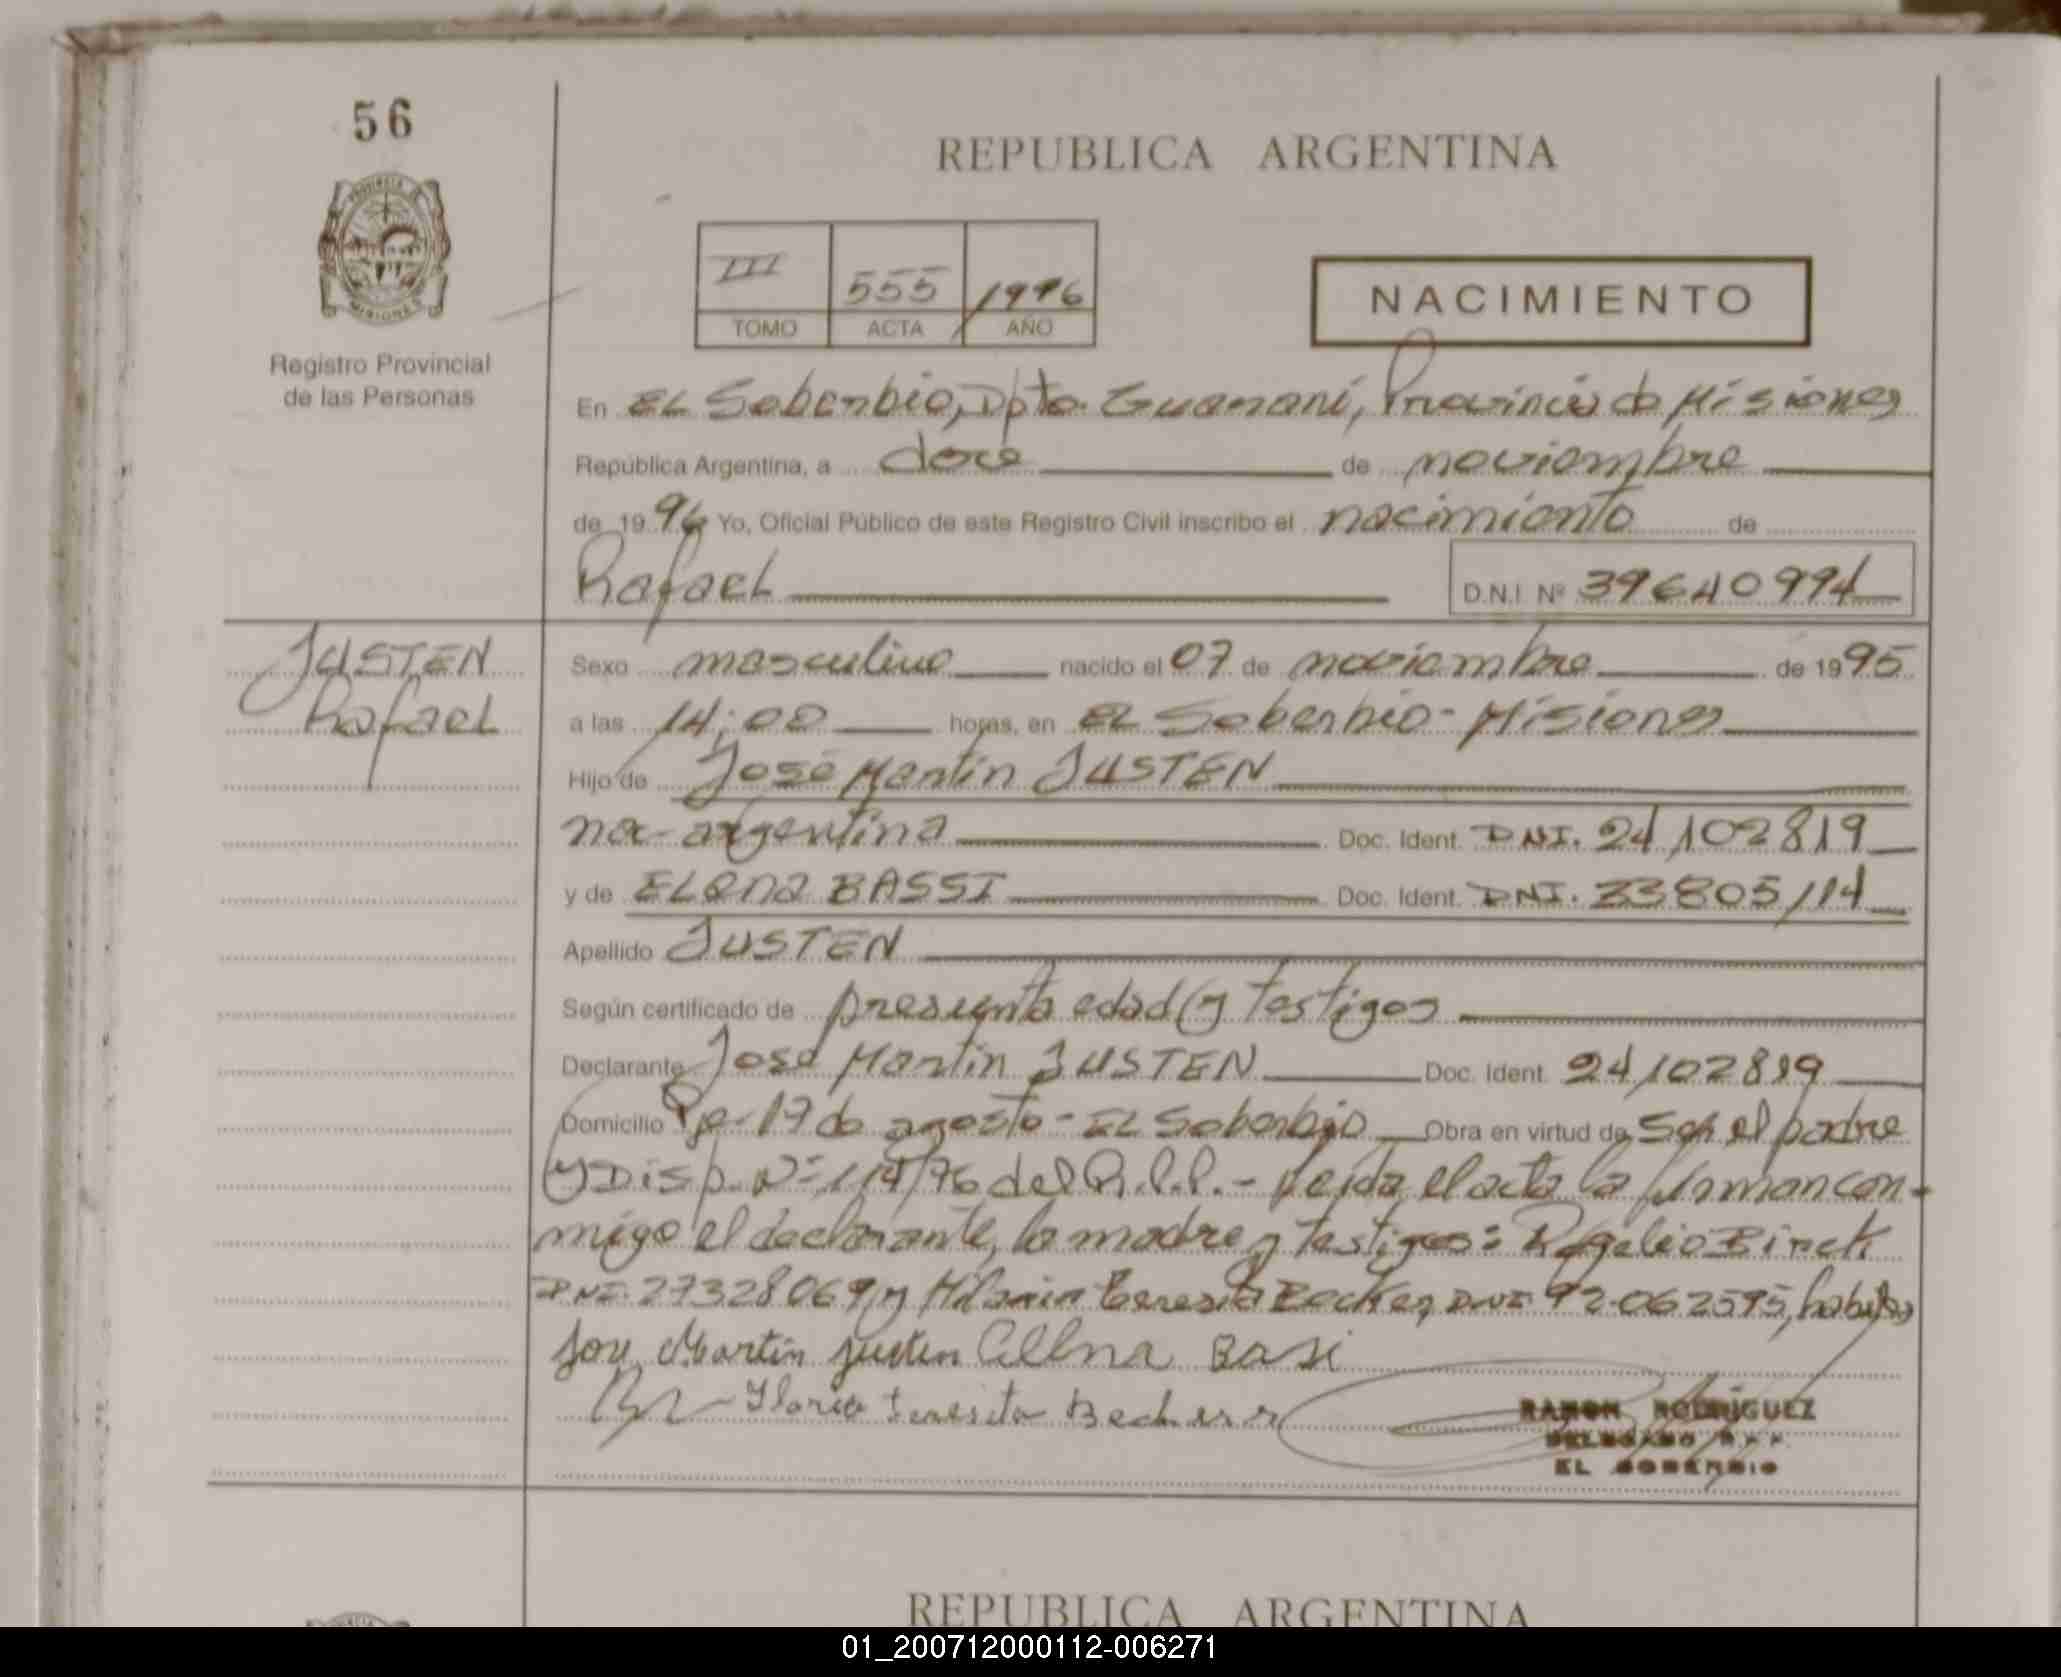 56
REPUBLICA ARGENTINA
III 555 1996
TOMO ACTA AÑO
NACIMIENTO
PROVINCIA DE
MISIONES
Registro Provincial
de las Personas
En EL Soberbio, Dpto. Guaraní, Provincia de Misiones
República Argentina, a doce de noviembre
de 1996 Yo, Oficial Público de este Registro Civil inscribo el nacimiento de
Rafael D.N.I. Nº 39640994
JUSTEN
Rafael
Sexo masculino nacido el 07 de noviembre de 1995
a las 14:00 horas, en EL Soberbio - Misiones
Hijo de José Martín JUSTEN
nac- argentina Doc. Ident. DNI. 24,102819
y de ELena BASSI Doc. Ident. DNI. 33805114
Apellido JUSTEN
Según certificado de presunta edad y testigos
Declarante José Martín JUSTEN Doc. Ident. 24,102819
Domicilio 17 de agosto - EL Soberbio Obra en virtud de ser el padre
y Disp. Nº 114/96 del R.P.P. - Leída el acta la firman con-
migo el declarante, la madre y testigos: Rogelio Binck
DNI. 27328069 y Hilaria Teresita Becker, DNI 92.062595, habiles
Jose Martin Justen Elena Basi
Ilaria Teresita Becker
RAMON RODRIGUEZ
DELEGADO R.P.P.
EL SOBERBIO
REPUBLICA ARGENTINA
01_200712000112-006271